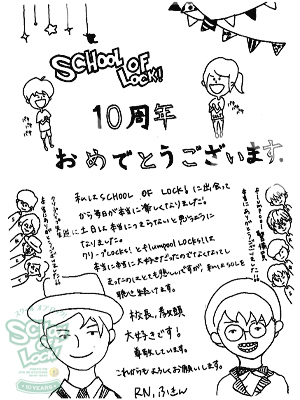 SCHOOL OF LOCK!!
10周年
おめでとうございます。
パチ パチ パチ
パチ パチ パチ
私はSCHOOL OF LOCK!に出会って
から毎日が本当に楽しくなりました。
逆に土日は本当につまらないと思うように
なりました。
クリープLOCKS!とflumpool LOCKS!は
本当に本当に大好きだったのでなくなってし
まったのはとても悲しいですが
聴き続けます。
校長、教頭
大好きです!
尊敬しています。
これからもよろしくお願いします。
RN,ふきん
SCHOOL OF LOCK!
10 YEARS